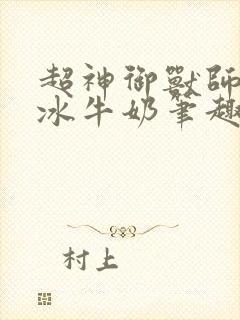 超神御獸師
冰牛奶筆趣
村上